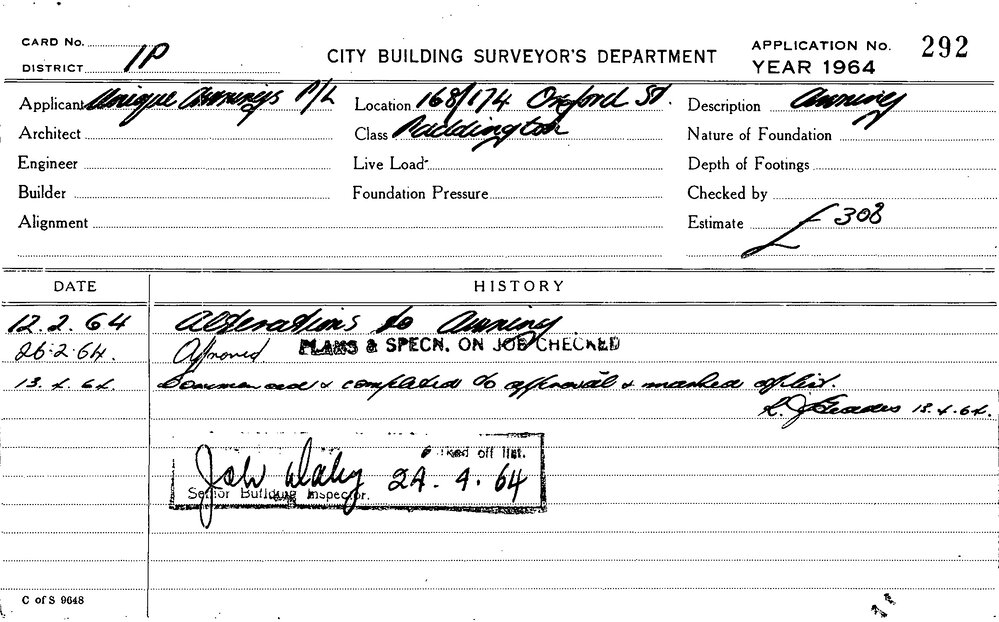 CARD No.
DISTRICT 1P
CITY BUILDING SURVEYOR'S DEPARTMENT
APPLICATION No. 292
YEAR 1964
Applicant Unique Awnings P/L
Location 168/174 Oxford St.
Description Awning
Architect
Class Paddington
Nature of Foundation
Engineer
Live Load
Depth of Footings
Builder
Foundation Pressure
Checked by
Alignment
Estimate £308
DATE HISTORY
12.2.64 Alterations to Awning
26.2.64. Approved PLANS & SPECN. ON JOB CHECKED
13.4.64. Commenced & completed to approval & marked off list.
13.4.64.
marked off list.
24.4.64
Senior Building Inspector.
C of S 9648